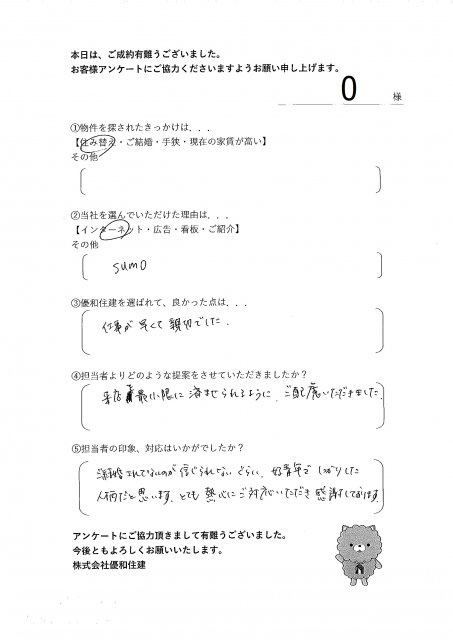 本日は、ご成約有難うございました。
お客様アンケートにご協力くださいますようお願い申し上げます。
O 様
①物件を探されたきっかけは．．．
【住み替え・ご結婚・手狭・現在の家賃が高い】
その他
②当社を選んでいただけた理由は．．．
【インターネット・広告・看板・ご紹介】
その他
SUMO
③優和住建を選ばれて、良かった点は．．．
仕事が早くて親切でした。
④担当者よりどのような提案をさせていただきましたか？
来店を最小限に済ませられるように、ご配慮いただきました。
⑤担当者の印象、対応はいかがでしたか？
結婚されてないのが信じられないぐらい、好青年でしっかりした
人柄だと思います。とても熱心にご対応いただき感謝しております
アンケートにご協力頂きまして有難うございました。
今後ともよろしくお願いいたします。
株式会社優和住建